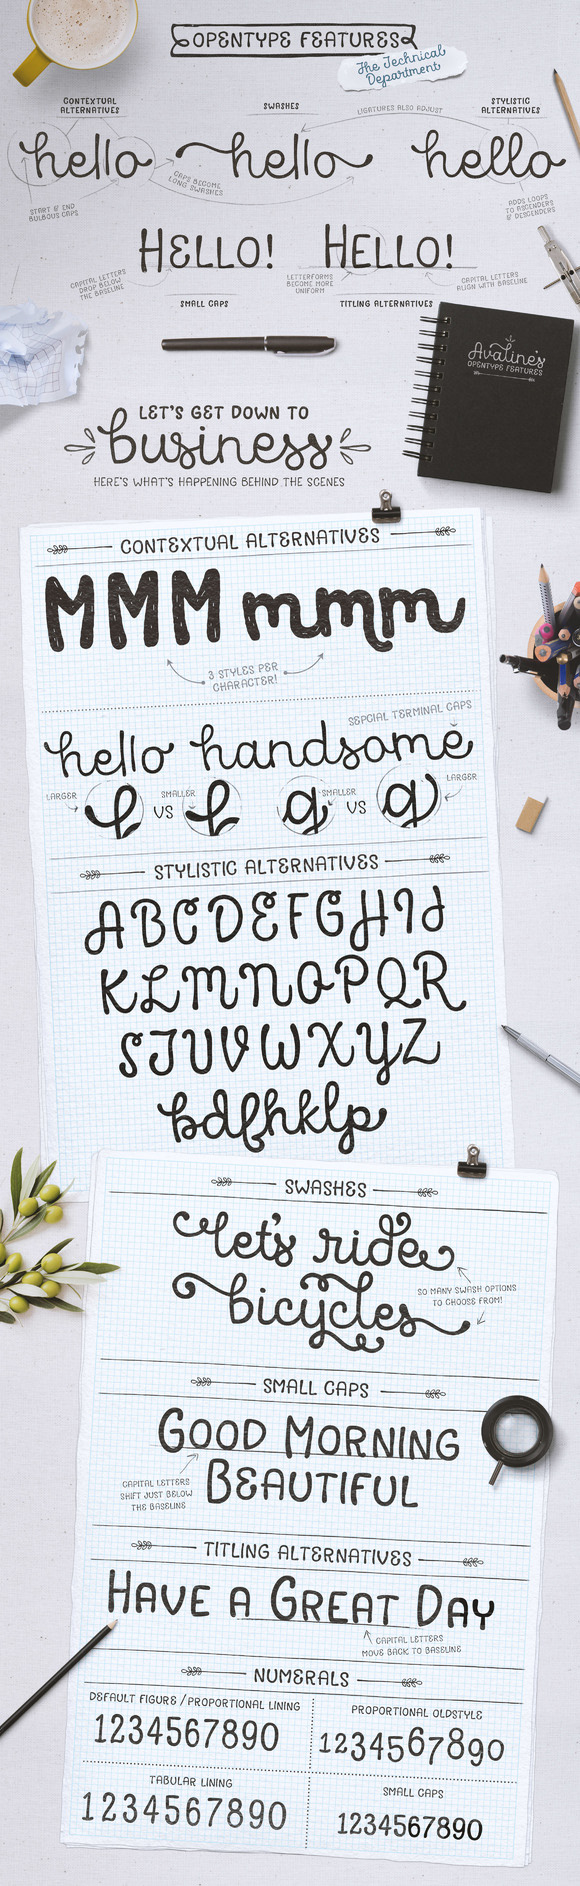 OPENTYPE FEATURES
The Technical
Department
CONTEXTUAL
ALTERNATIVES
SWASHES
LIGATURES ALSO ADJUST
STYLISTIC
ALTERNATIVES
hello hello hello
CAPS BECOME
LONG SWASHES
START & END
BULBOUS CAPS
ADDS LOOPS
TO ASCENDERS
& DESCENDERS
HELLO! HELLO!
CAPITAL LETTERS
DROP BELOW
THE BASELINE
LETTERFORMS
BECOME MORE
UNIFORM
CAPITAL LETTERS
ALIGN WITH BASELINE
SMALL CAPS
TITLING ALTERNATIVES
Avaline's
OPENTYPE FEATURES
LET'S GET DOWN TO
business
HERE'S WHAT'S HAPPENING BEHIND THE SCENES
CONTEXTUAL ALTERNATIVES
MMM mmm
3 STYLES PER
CHARACTER!
SEPCIAL TERMINAL CAPS
hello handsome
LARGER h VS SMALLER h a SMALLER VS a LARGER
STYLISTIC ALTERNATIVES
ABCDEFGHIJ
KLMNOPQR
STUVWXYZ
bdfhklp
SWASHES
let's ride
bicycles
SO MANY SWASH OPTIONS
TO CHOOSE FROM!
SMALL CAPS
GOOD MORNING
BEAUTIFUL
CAPITAL LETTERS
SHIFT JUST BELOW
THE BASELINE
TITLING ALTERNATIVES
HAVE A GREAT DAY
CAPITAL LETTERS
MOVE BACK TO BASELINE
NUMERALS
DEFAULT FIGURE/PROPORTIONAL LINING
1234567890
PROPORTIONAL OLDSTYLE
1234567890
TABULAR LINING
1234567890
SMALL CAPS
1234567890